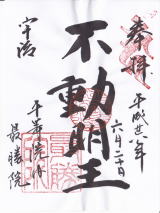 奉拝
平成廿年
六月二十日
不動明王
宇治
平等院内
最勝院